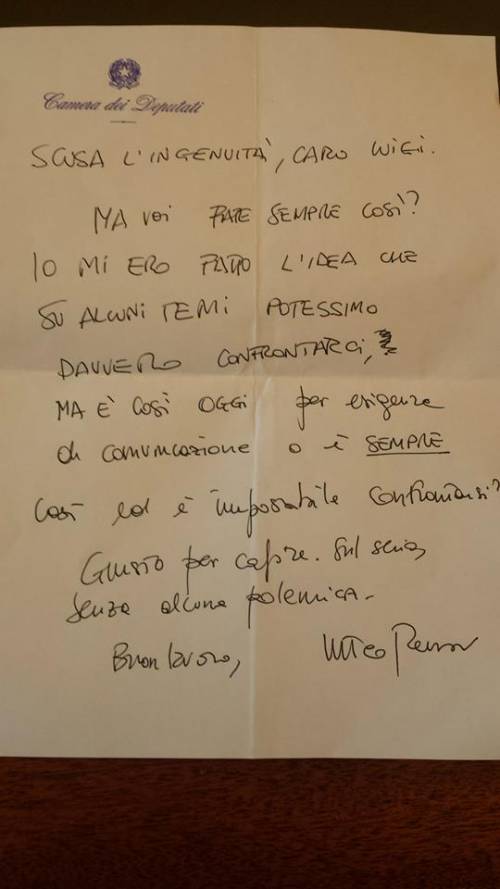 Camera dei Deputati
SCUSA L'INGENUITÀ, CARO WIGI.
MA VOI FATE SEMPRE COSÌ?
IO MI ERO FATTO L'IDEA CHE
SU ALCUNI TEMI POTESSIMO
DAVVERO CONFRONTARCI,
MA È COSÌ OGGI per esigenze
di comunicazione o è SEMPRE
così ed è impossibile confrontarsi?
Giusto per capire. Sul serio,
senza alcuna polemica.
Buon lavoro, Matteo Renzi